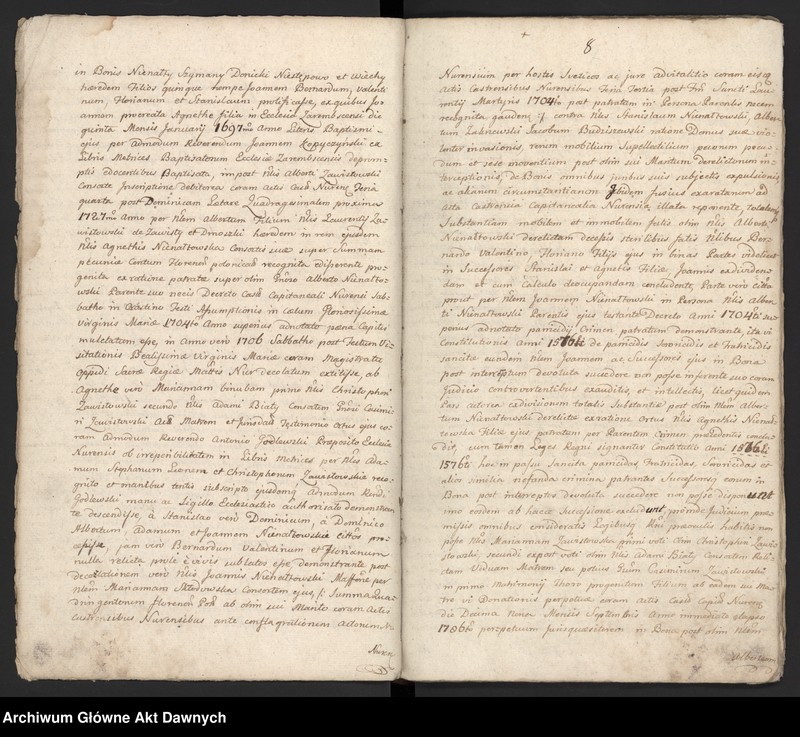 in Bonis Nienałty Szymany Donicki Niestępowo et Wiechy
hæredem Filios quinque nempe Joannem Bernardum, Valenti
num, Florianum et Stanislaum prolificasse, ex quibus Jo-
annem procreata Agnethe filia in Ecclesia Zarembscensi die
quinta Mensis Januarij 1697mo Anno Literis Baptismi-
ejus per Admodum Reverendum Joannem Kopyczyński ex
Libris Metrices Baptisatorum Ecclesiæ Zarembscensis deprom-
ptis edocentibus Baptisata, impost Nlis Alberti Zawistowski
Consorte Inscriptione debitorea coram actis Castr: Nuren: Feria
quarta post Dominicam Lætare Quadragesimalem proxima
1727mo Anno per Nlem Albertum Filium Nlis Laurentij Za-
wistowski de Zawisty et Dmoszki hæredem in rem ejusdem
Nlis Agnethis Nienałtowska Consortis suæ super Summam
pecuniæ Centum Florenor: polonical: recognita
genita ex ratione patratæ super olim Gnoso Alberto Nienałto
wski Parente suo necis Decreto Castr: Capitaneali Nurensi Sab-
batho in Crastino Festi Assumptionis in cœlum Gloriosissimæ
Virginis Mariæ 1704to Anno superius adnotato pœna Capitis
mulctatum esse, in Anno vero 1706 Sabbatho post Festum Vi-
sitationis Beatissimæ Virginis Mariæ coram Magistratu
Oppidi Sacræ Regiæ Mattis Nur decolatum extitisse, ab
Agnethe vero Mariannam binubam primo Nlis Christophori
Zawistowski secundo Nlis Adami Biały Consortem Gnosi Casimi-
ri Zawistowski Act: Matrem et ejusdam Testimonio Ortus ejus co-
ram Admodum Reverendo Antonio Godlewski Præposito Ecclesiæ
Nurensis ob irreperibilitatem in Libris Metrices per Nles Ada-
mum Stephanum Leonem et Christophorum Zawistowskie reco-
gnito et manibus tertis subscripto ejusdemq Admodum Rndi
Godlewski manu ac Sigillo Ecclesiastico authorisato demonstran
te descendisse, a Stanislao vero Dominicum, a Dominico
Albertum, Adamum et Joannem Nienałtowskie Cittos pro-
cessisse, jam vero Bernardum Valentinum et Florianum
nulla relicta prole e vivis sublatos esse demonstrante post
decollationem vero Nlis Joannis Nienałtowski Massone per
Nlem Mariannam Skłodowska Consortem ejus, Summa Qua-
dringentorum Florenor: Pol: ab olim sui Marito coram Actis
Castrensibus Nurensibus ante conflagrationem Actorum Nu-
Nuren
8
Nurensium per hostes Svetico ac juro advitalitio coram eisq
Actis Castrensibus Nurensibus Feria Tertia post Fm Sancti Lau
rentij Martyris 1704to post patratam in Persona Parentis necem
recognita gauden: contra Nles Stanislaum Nienałtowski, Alber
tum Zabnowski Jacobum Budziszewski ratione Domus suæ vio-
lenter invasionis, rerum mobilium Supellectilium pecorum pecu-
dum et sese inventium post olim sui Maritum derelictorum in-
terceptionis, de Bonis omnibus juribus suis subjectis expulsionis
ac aliarum circumstantiarum Ibidem fusius exaratarum ad
Acta Castrensia Capitanealia Nurensia illata reponente, totalem
Substantiam mobilem et immobilem fatis olim Nlis Alberti
Nienałtowski derelictam decessis sterilibus fatis Nlibus Ber-
nardo Valentino Floriano Filijs ejus in binas Partes videlicet
in Successores Stanislai et Agnetis Filiæ Joannis exdividen-
dam et cum Calculo deoccupandam concludente, Parte vero Citta
prout per Nlem Joannem Nienałtowski in Persona Nlis Alber-
ti Nienałtowski Parentis ejus testante Decreto Anni 1704ti su-
perius adnotato parricidij Crimen patratum demonstrante, ita vi
Constitutionis Anni 1576ti de parricidis Sororicidis et Fratricidis
sancita eundem Nlem Joannem ac Successores ejus in Bona
post interceptum devoluta succedere non posse inferente suo coram
Judicio controvertentibus exauditis, et intellectis, licet quidem
Pars actorea exdivisionem totalis Substantiæ post olim Nlem Alber-
tum Nienałtowski derelictæ ex ratione Ortus Nlis Agnethis Nienał-
towska Filiæ ejus, patratum per Parentem Crimen præcedentis conclu-
dit, cum tamen Leges Regni signanter Constitutio Anni 1576ti
1576ti hoc in passu Sancita parricidas, Fratricidas, Sororicidas et
alios similia nefanda crimina patrantes Successores eorum in
Bona post interceptos Devoluta succedere non posse disponunt
imo eosdem ab hacce Successione excludunt, proinde Judicium præ-
missis omnibus consideratis Legibusq Rni præoculis habitis non
posse Nlis Mariannam Zawistowska primi voti olim Christophori Zawis
towski, secundi expost voti olim Nlis Adami Biały Consortem Reli-
ctam Viduam Matrem seu potius Gnum Casimirum Zawistowski
in primo Matrimonij Thoro progenitum Filium ab eadem sui Ma-
tre vi Donationis perpetuæ coram Actis Castr: Capit: Nuren:
die Decima Nona Mensis Septembris Anno immediate elapso
1786to perpetuum jurisquæsitorem in Bona post olim Nlem
Albertum
Archiwum Główne Akt Dawnych